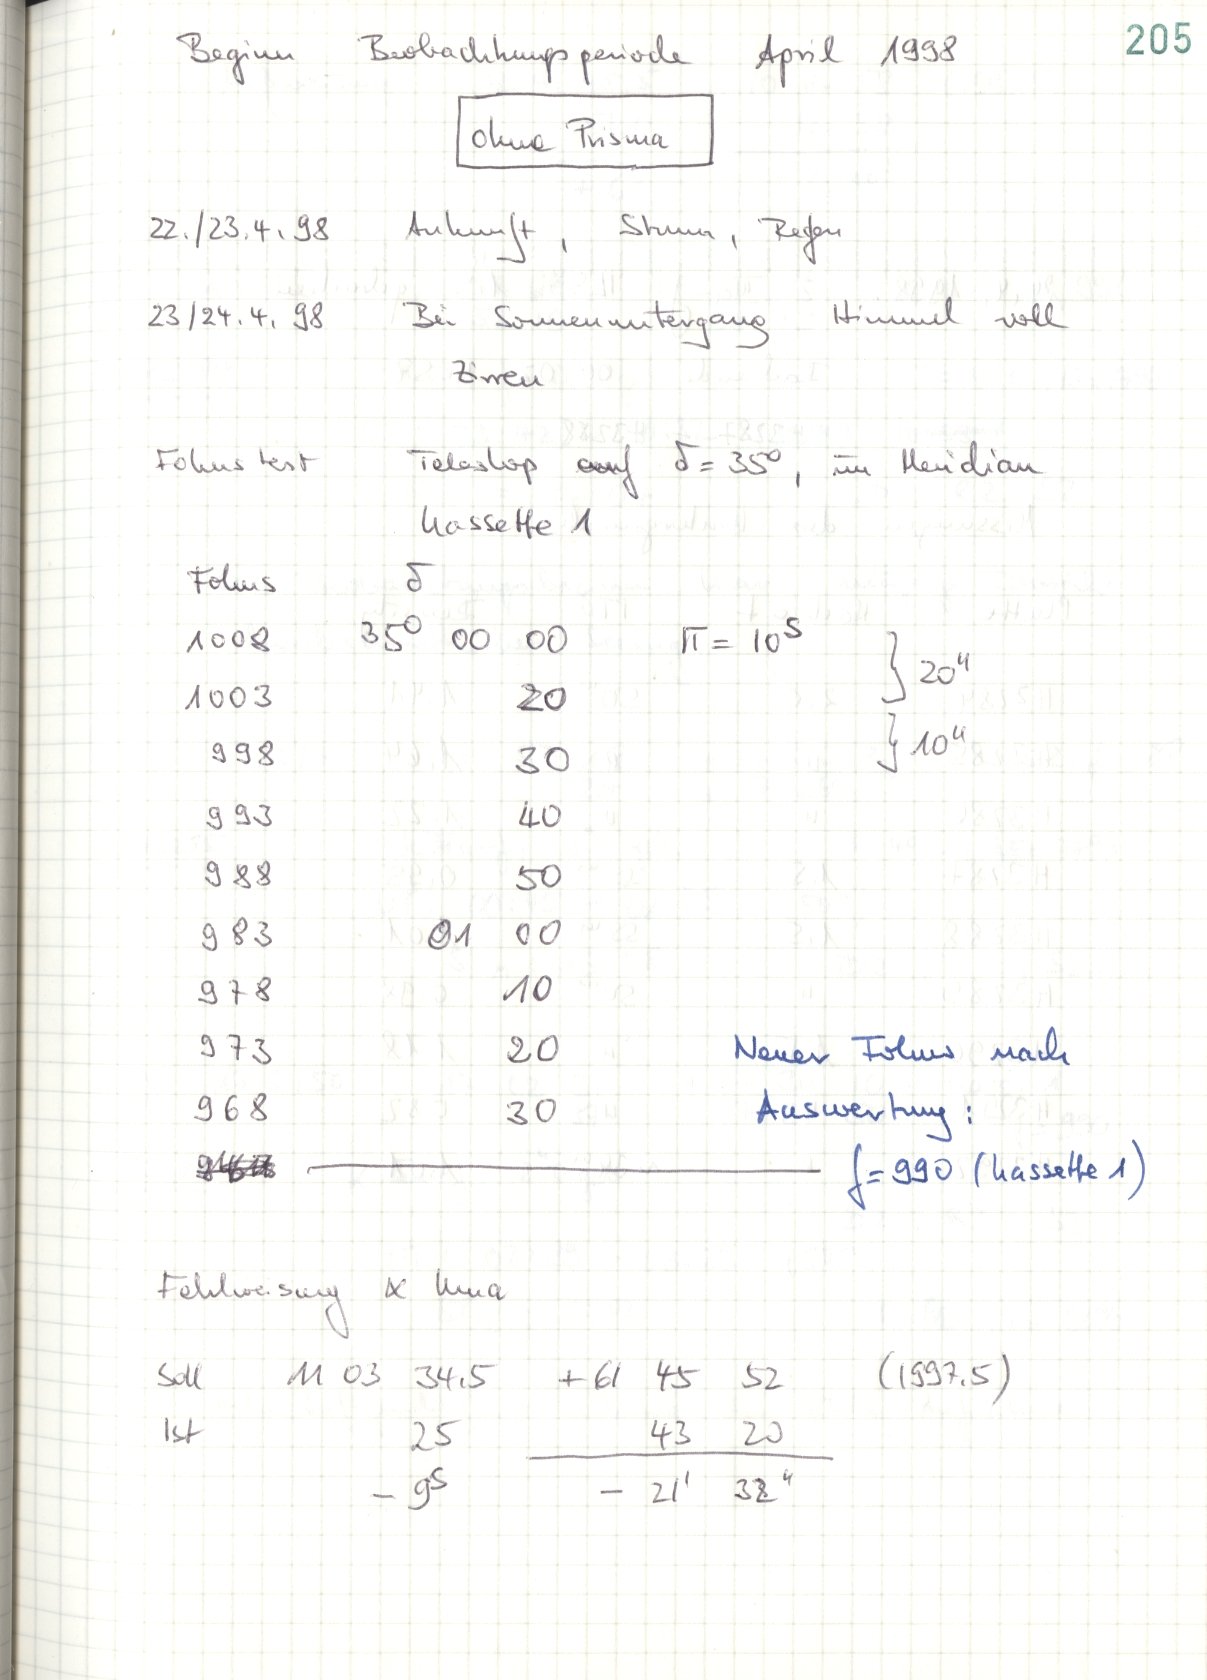 205
Beginn Beobachtungsperiode April 1998
ohne Prisma
22./23.4.98 Ankunft, Sturm, Regen
23/24.4.98 Bei Sonnenuntergang Himmel voll
Zirren
Fokustest Teleskop auf δ = 35°, im Meridian
Kassette 1
Fokus δ
1008 35° 00 00 Π = 10s } 20"
1003 20
998 30 } 10"
993 40
988 50
983 01 00
978 10
973 20 Neuer Fokus nach
968 30 Auswertung:
f = 990 (Kassette 1)
Fehlweisung α Uma
Soll 11 03 34.5 +61 45 52 (1997.5)
Ist 25 43 20
- 9s - 21' 32"